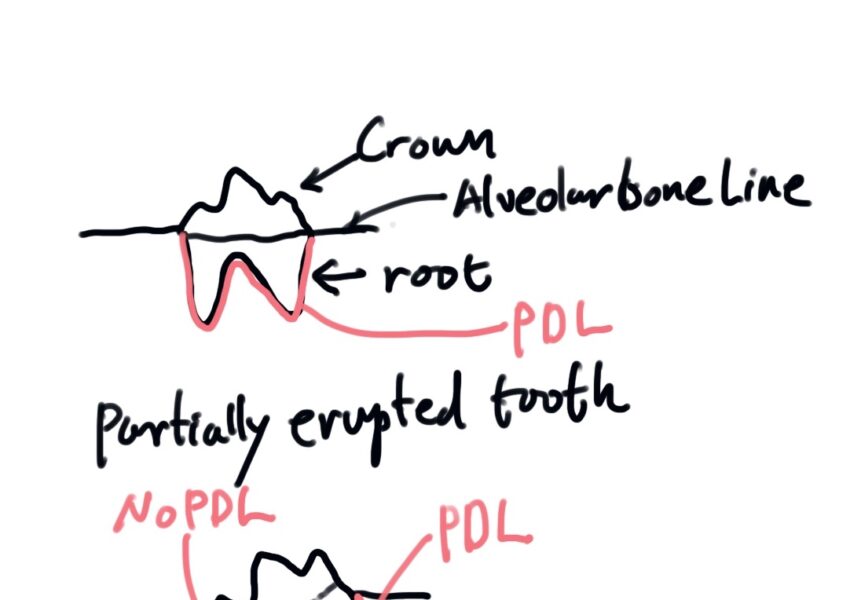 Crown
Alveolar bone Line
root
PDL
Partially erupted tooth
No PDL
PDL